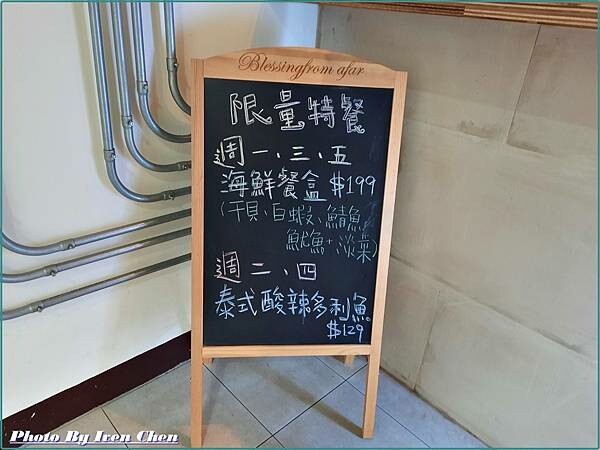 Blessingfrom afar
限量特餐
週一、三、五
海鮮餐盒 $199
(干貝、白蝦、鯖魚、
魷魚+淡菜)
週二、四
泰式酸辣多利魚
$129
Photo By Iven Chen